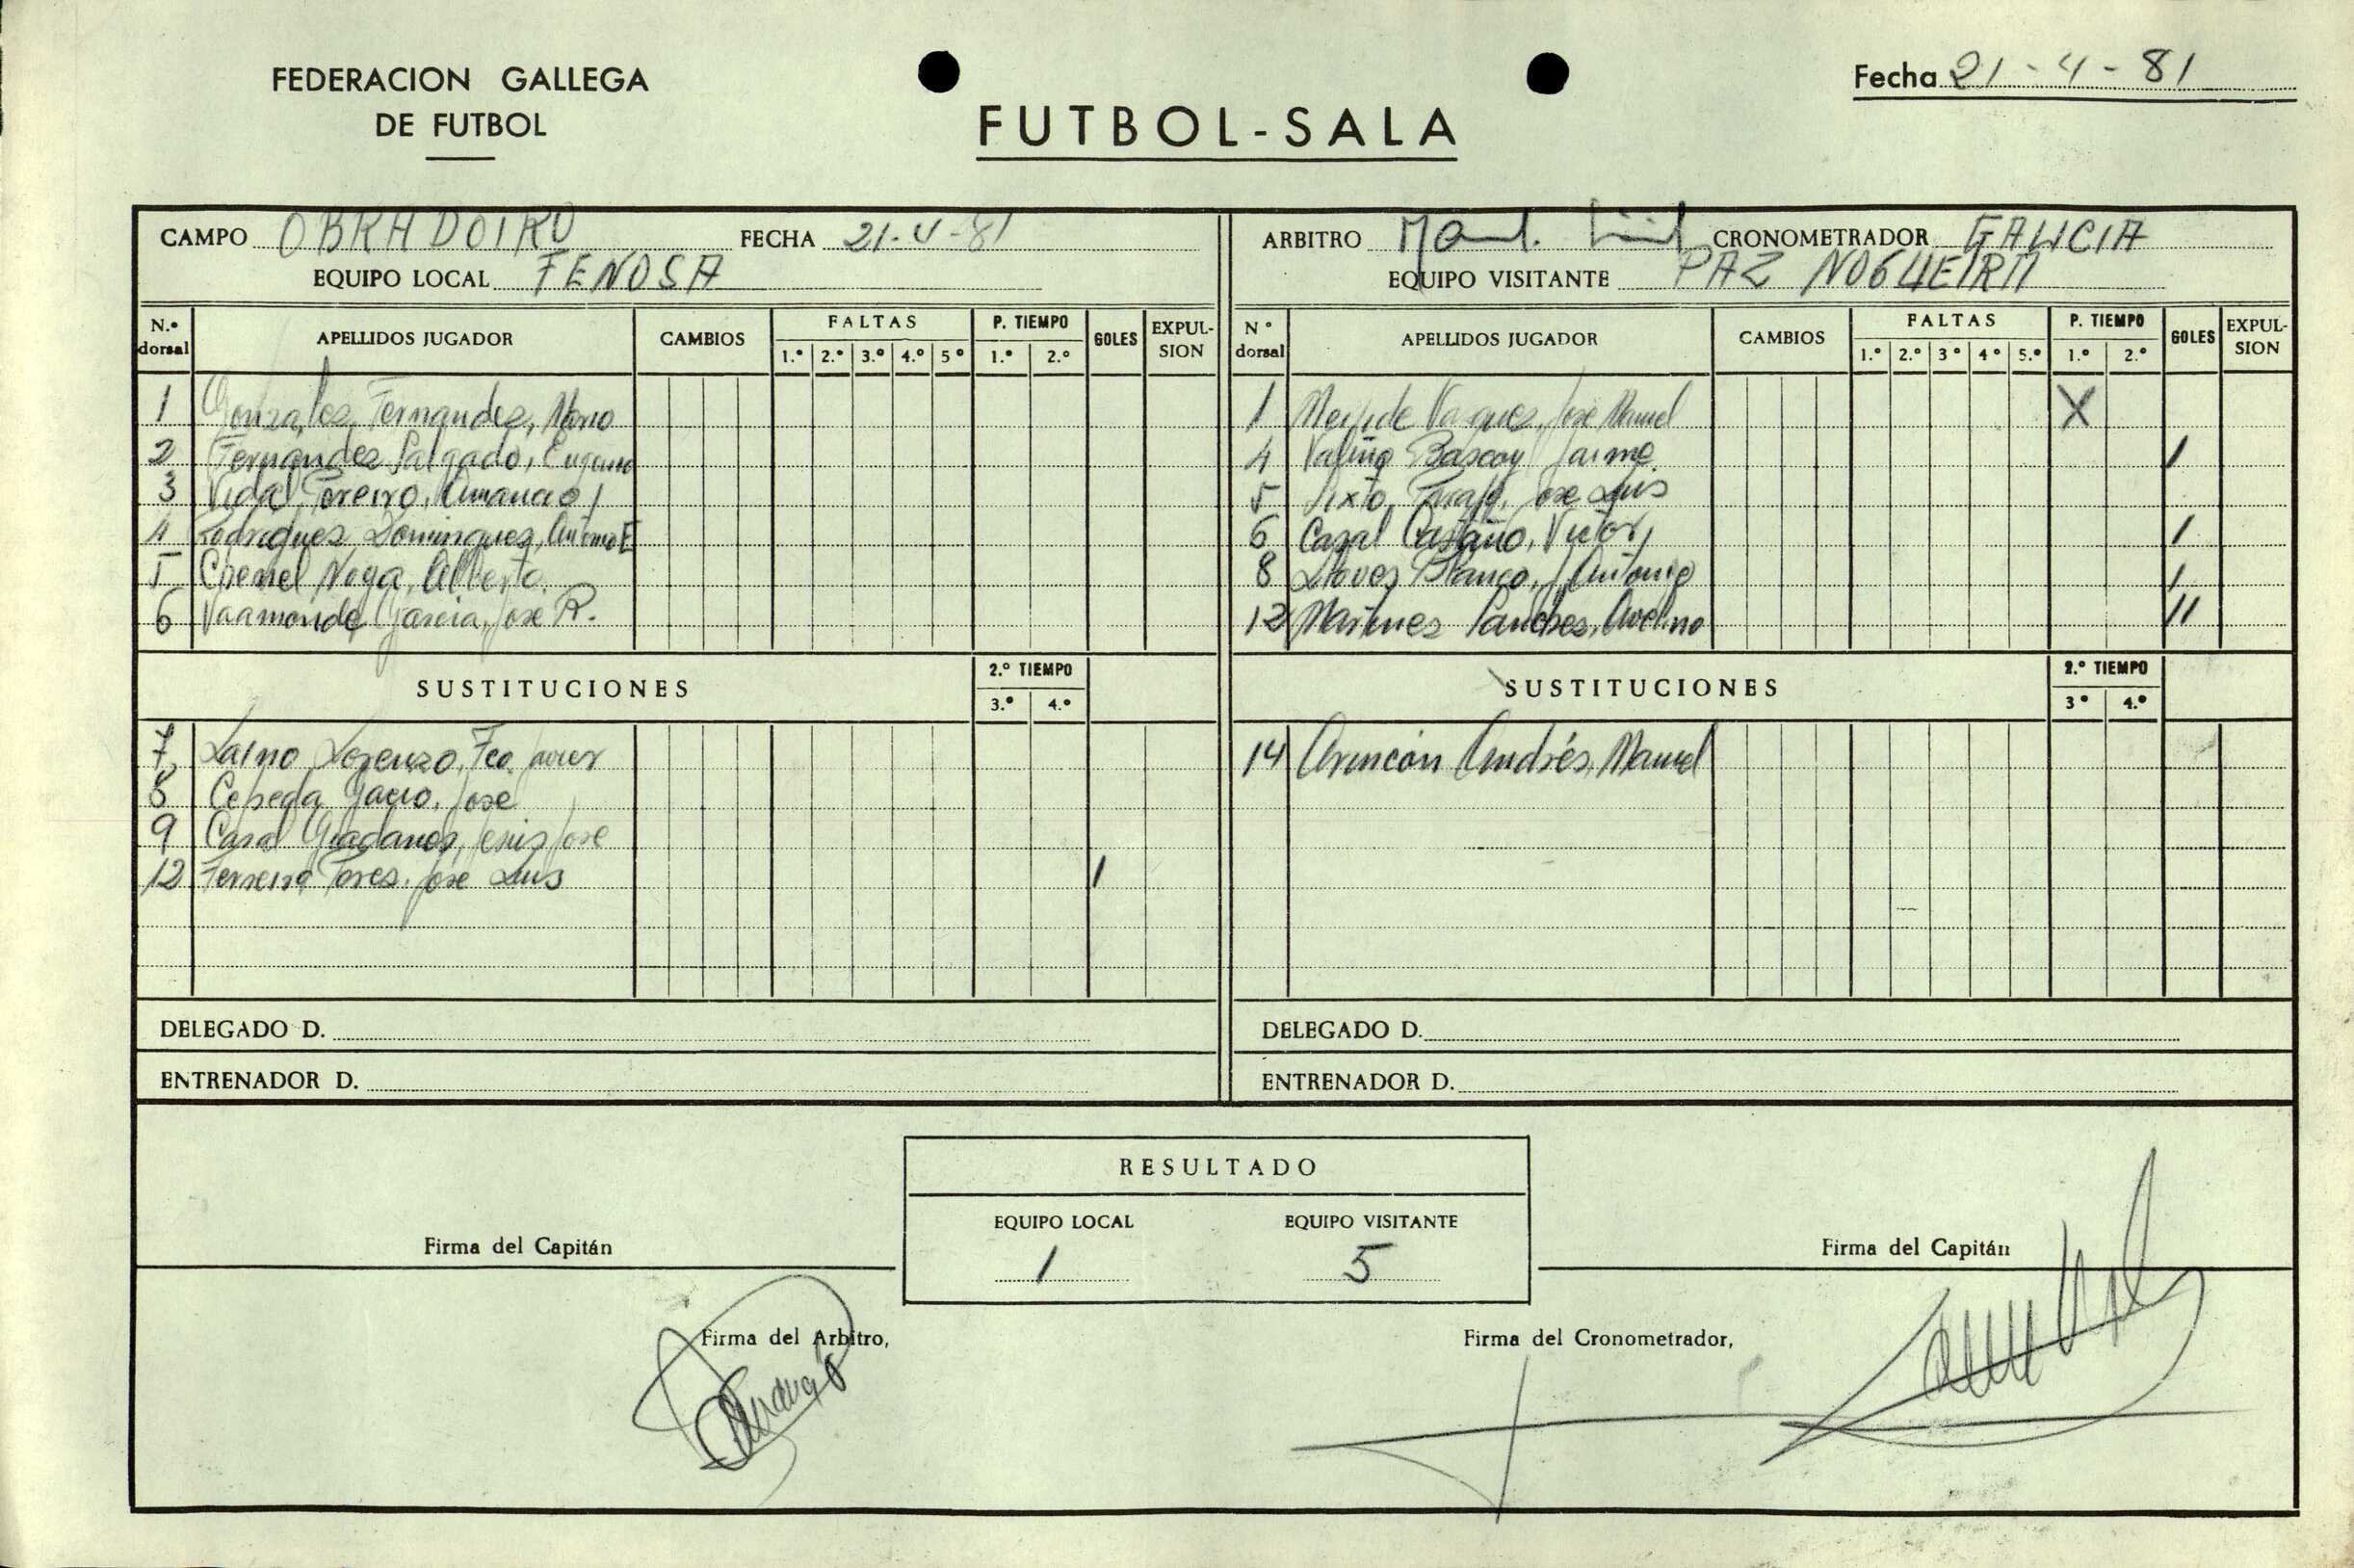 FEDERACION GALLEGA
DE FUTBOL
FUTBOL-SALA
Fecha 21-4-81
CAMPO OBRADOIRO FECHA 21-4-81
EQUIPO LOCAL FENOSA
N.º dorsal APELLIDOS JUGADOR CAMBIOS FALTAS 1.º 2.º 3.º 4.º 5º P. TIEMPO 1.º 2.º GOLES EXPUL-SION
1 Gonzalez Fernandez, Mario
2 Fernandez Salgado, Eugenio
3 Vidal Pereiro, Amancio
4 Rodriguez Dominguez, Antonio E
5 Noya, Alberto.
6 Vaamonde Garcia, Jose R.
SUSTITUCIONES 2.º TIEMPO 3.º 4.º
7 Laino Lorenzo, Fco. Javier
8 Cepeda Gacio, Jose
9 Casal Jesus Jose
12 Ferreiro Pores, Jose Luis 1
DELEGADO D.
ENTRENADOR D.
ARBITRO CRONOMETRADOR GALICIA
EQUIPO VISITANTE PAZ NOGUEIRA
Nº dorsal APELLIDOS JUGADOR CAMBIOS FALTAS 1.º 2.º 3º 4º 5.º P. TIEMPO 1.º 2.º GOLES EXPUL-SION
1 Mejide Vazquez, Jose Manuel X
4 Valiño Bascoy Jaime 1
5 Sixto Jose Luis
6 Casal Castaño, Victor 1
8 Lloves Blanco, Antonio 1
12 Martinez Sanchez, Avelino 11
SUSTITUCIONES 2.º TIEMPO 3º 4.º
14 Andrés, Manuel
DELEGADO D.
ENTRENADOR D.
RESULTADO
EQUIPO LOCAL EQUIPO VISITANTE
1 5
Firma del Capitán
Firma del Capitán
Firma del Arbitro,
Firma del Cronometrador,